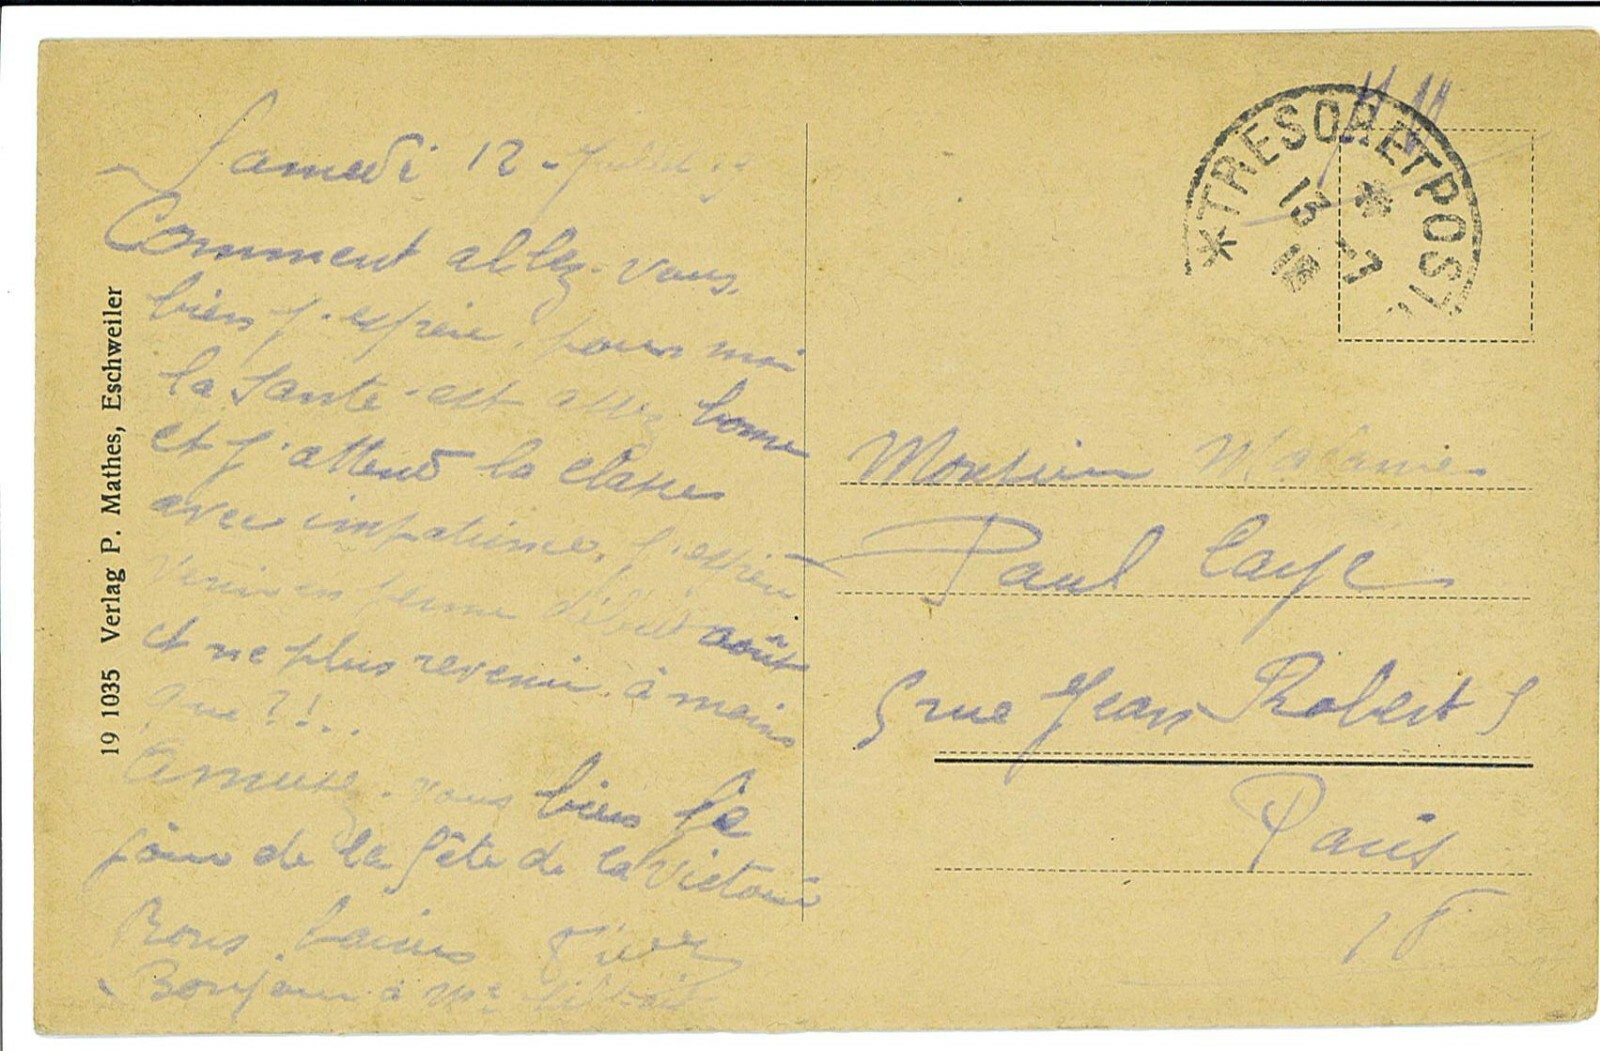 Samedi 12 - Juillet 19
Comment allez-vous,
bien j'espère, pour moi
la santé est assez bonne
et j'attend la classe
avec impatience. J'espère
venir en perme début août
et ne plus revenir à moins
que ?!..
Amusez-vous bien le
jour de la fête de la Victoire
Bons baisers
Bonjour à Me
19 1035 Verlag P. Mathes, Eschweiler
* TRESOR ET POSTE
13 -7
*
Monsieur
Paul Caye
5 rue Jean Robert 5
Paris
18